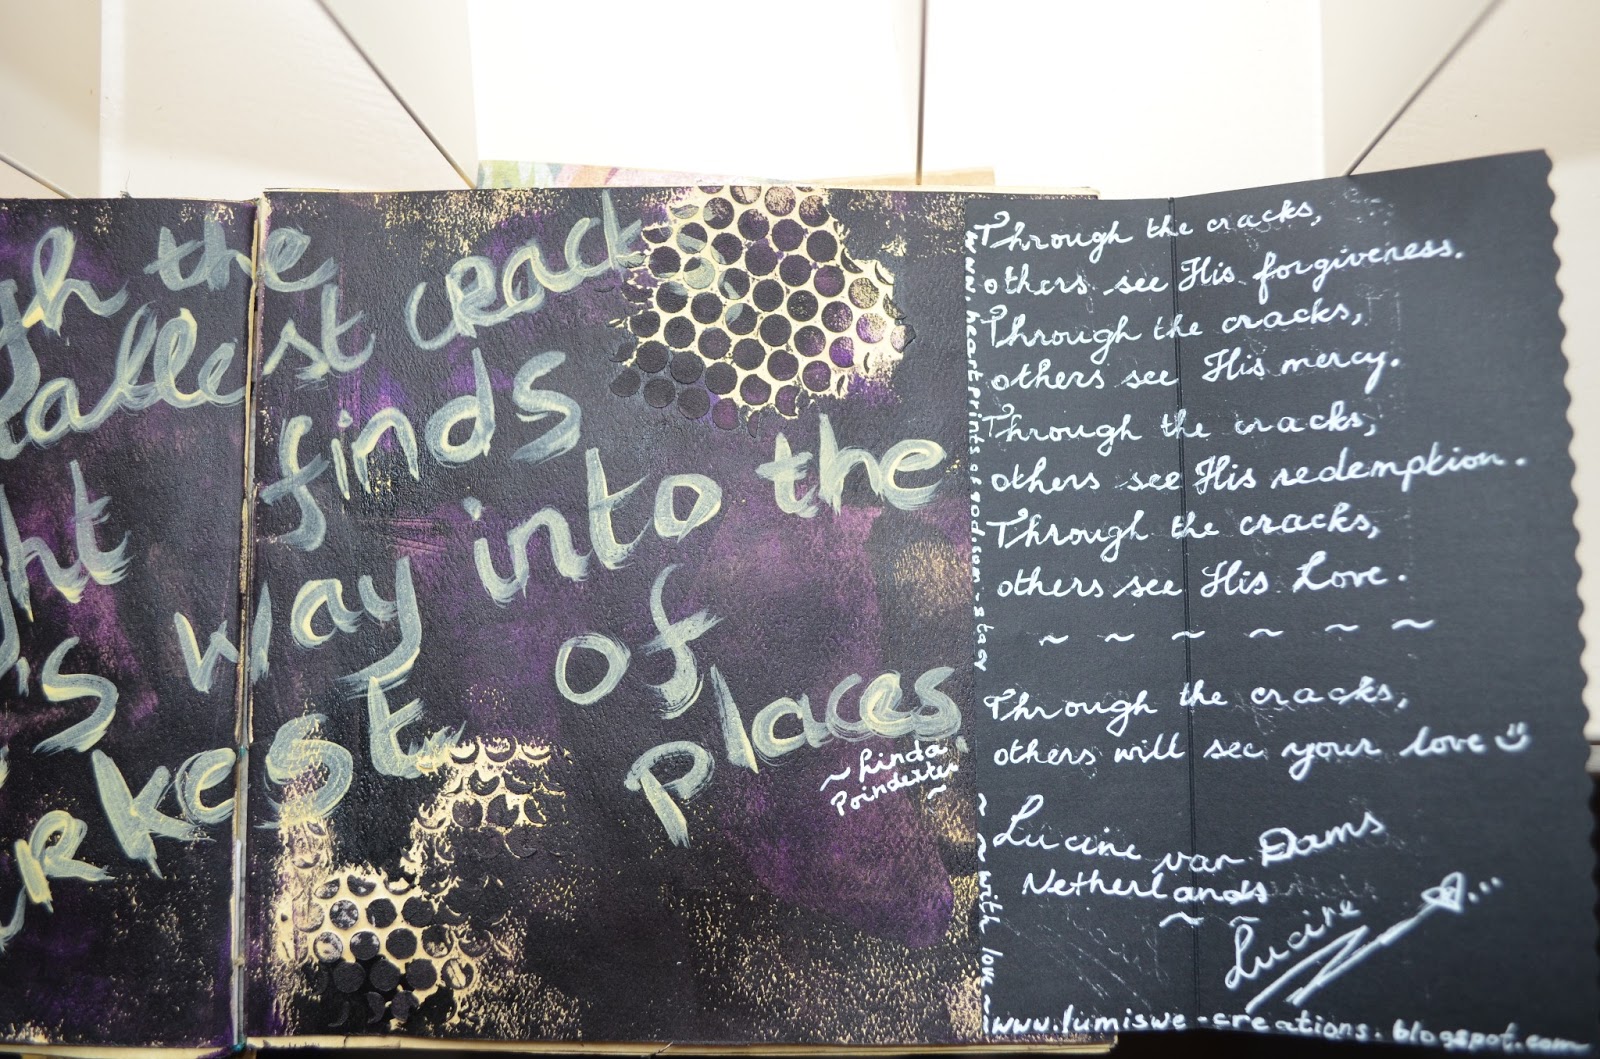 gh the
allest crack
ght finds
s way into the
rkest of
places
~ Linda
Poindexter
~
www.heartprintsofgod.com - stacy
~ ~ with love ~
Through the cracks,
others see His forgiveness.
Through the cracks,
others see His mercy.
Through the cracks,
others see His redemption.
Through the cracks,
others see His Love.
~ ~ ~ ~ ~ ~
Through the cracks,
others will see your love
Lucine van Dams
Netherlands
~ ~
Lucine
www.lumiswe-creations.blogspot.com